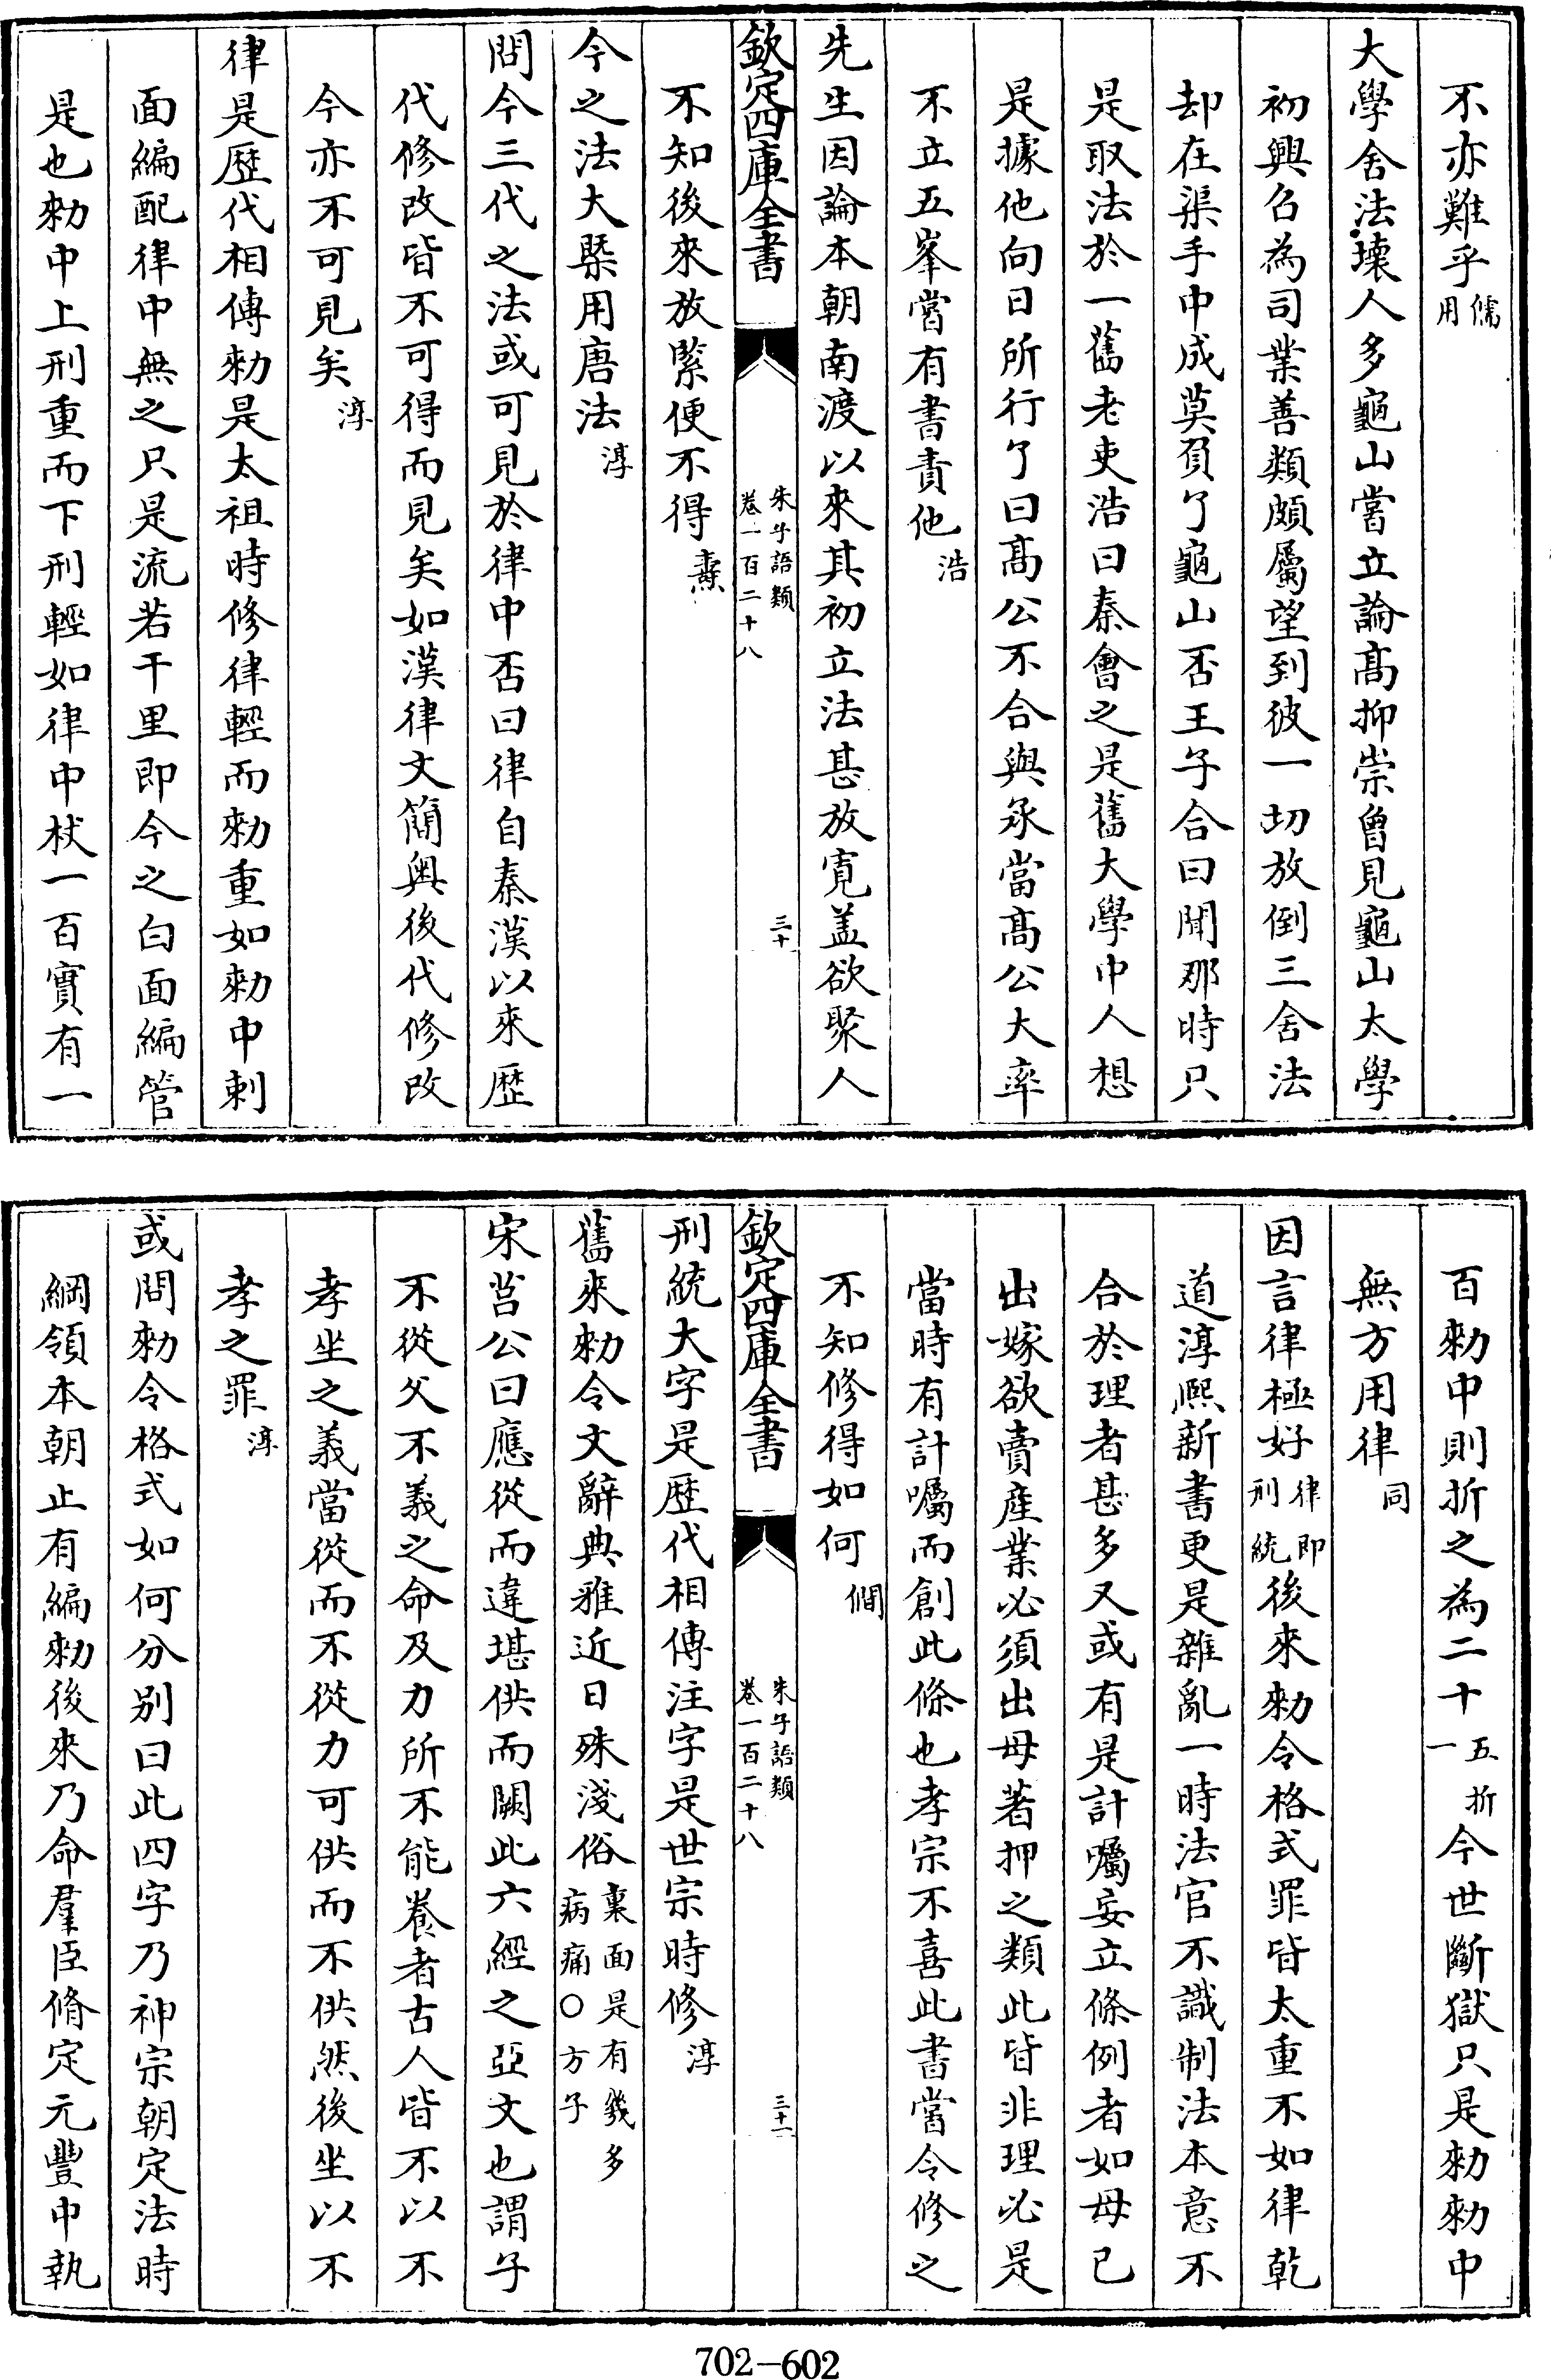 不亦難乎儒用
大學舍法壞人多龜山嘗立論高抑崇曾見龜山太學
初興召為司業善類頗屬望到彼一切放倒三舍法
却在渠手中成莫負了龜山否王子合曰聞那時只
是取法於一舊老吏浩曰秦會之是舊大學中人想
是據他向日所行了曰高公不合與承當高公大率
不立五峯嘗有書責他浩
先生因論本朝南渡以來其初立法甚放寛盖欲聚人
欽定四庫全書 朱子語類 卷一百二十八 三十
不知後來放緊便不得燾
今之法大槩用唐法淳
問今三代之法或可見於律中否曰律自秦漢以來歴
代修改皆不可得而見矣如漢律文簡奥後代修改
今亦不可見矣淳
律是歴代相傳勅是太祖時修律輕而勅重如勅中刺
面編配律中無之只是流若干里即今之白面編管
是也勅中上刑重而下刑輕如律中杖一百實有一
百勅中則折之為二十五折一今世斷獄只是勅勅中
無方用律同
因言律極好律即刑統後來勅令格式罪皆太重不如律乾
道淳熙新書更是雜亂一時法官不識制法本意不
合於理者甚多又或有是計囑妄立條例者如母已
出嫁欲賣産業必須出母著押之類此皆非理必是
當時有計囑而創此條也孝宗不喜此書嘗令修之
不知修得如何僩
欽定四庫全書 朱子語類 卷一百二十八 三十一
刑統大字是歴代相傳注字是世宗時修淳
舊來勅令文辭典雅近日殊淺俗裏面是有幾多病痛○方子
宋莒公曰應從而違堪供而闕此六經之亞文也謂子
不從父不義之命及力所不能養者古人皆不以不
孝坐之義當從而不從力可供而不供然後坐以不
孝之罪淳
或問勅令格式如何分别曰此四字乃神宗朝定法時
綱領本朝止有編勅後來乃命羣臣脩定元豐中執
702-602